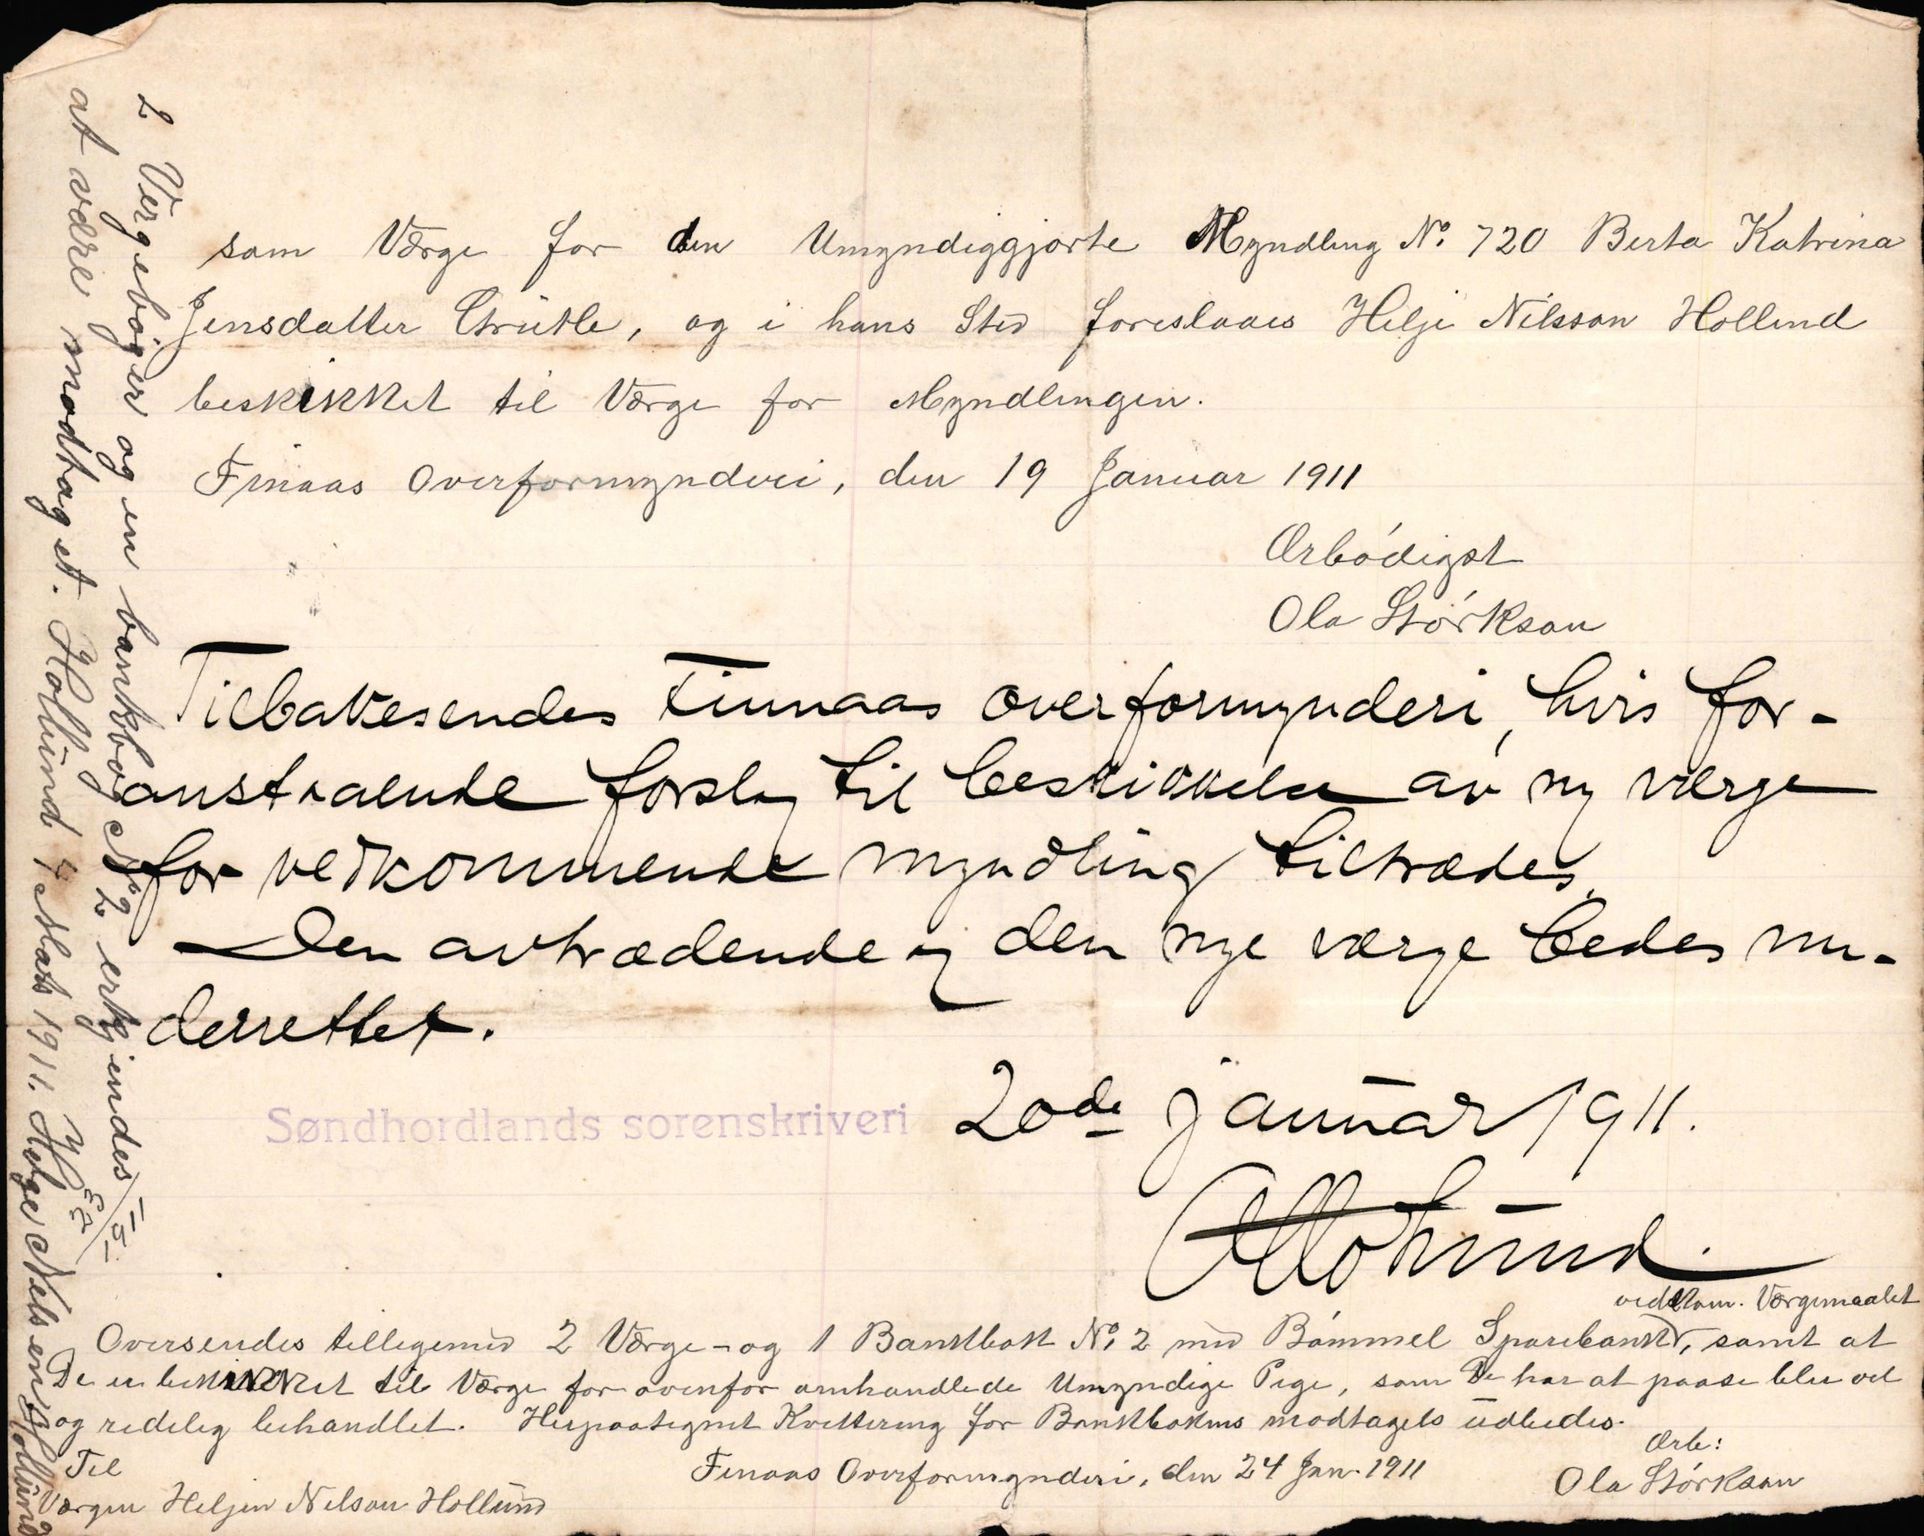 som Værge for den Umyndiggjorte Myndling No. 720 Berta Katrina
Jensdatter Grutle, og i hans Sted foreslaaes Helje Nilsson Hollund
beskikket til Værge for Myndlingen.
Finaas Overformynderi, den 19 Januar 1911
Ærbødigst
Ola Størkson
Tilbakesendes Finnaas overformynderi, hvis for-
anstaaende forslag til beskikkelse av ny værge
for vedkommende myndling tiltrædes.
Den avtrædende og den nye værge bedes un-
derrettet.
Søndhordlands sorenskriveri 20de januar 1911.
vedkom. Værgemaalet
Oversendes tilligemed 2 Værge- og 1 Bankbok No. 2 med Bømmel Sparebank, samt at
De er beskikket til Værge for ovenfor omhandlede Umyndige Pige, som De har at paase blir vel
og redelig behandlet. Herpaategnet Kvittering for Bankbokens modtagels udbedes.
Finaas Overformynderi, den 24 Jan. 1911
Ærb:
Ola Størkson
Til
Værgen Heljen Nilson Hollund
2 Vergebøger og en bankbog No 2 erkjendes
at være modtaget. Hollund 7 Mars 1911. Helge Nelsen Hollund